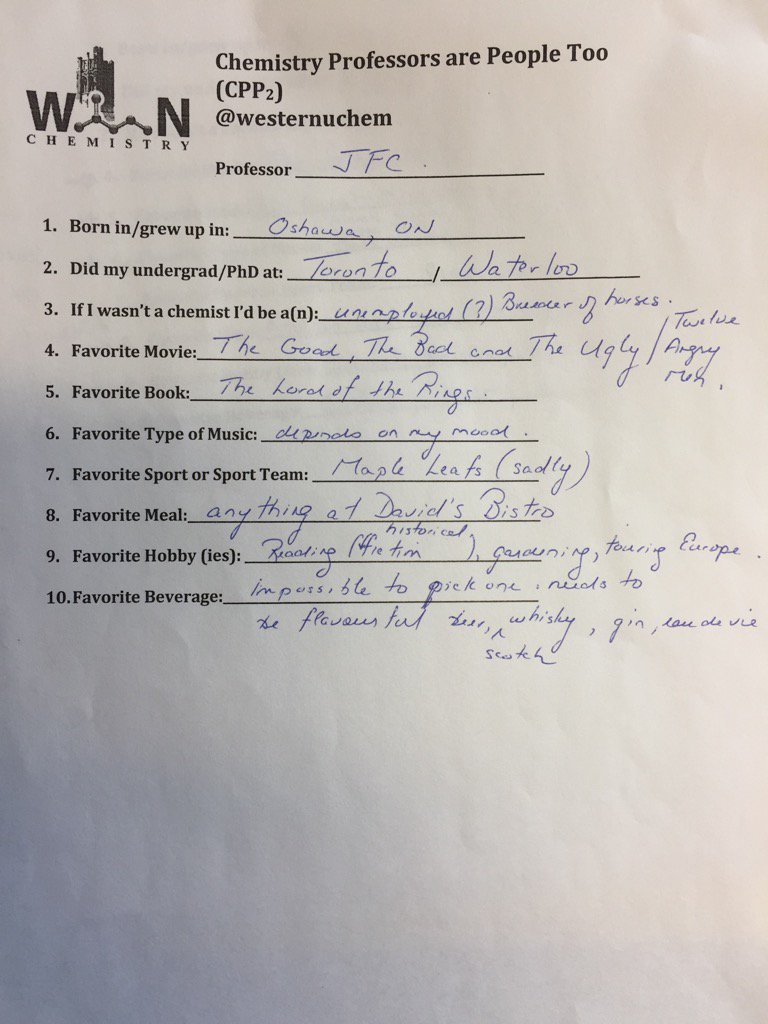 Chemistry Professors are People Too
(CPP₂)
@westernuchem
W N
CHEMISTRY
Professor JFC.
1. Born in/grew up in: Oshawa, ON
2. Did my undergrad/PhD at: Toronto / Waterloo
3. If I wasn't a chemist I'd be a(n): unemployed (?) Breeder of horses.
4. Favorite Movie: The Good, The Bad and The Ugly / Twelve Angry Men.
5. Favorite Book: The Lord of the Rings.
6. Favorite Type of Music: depends on my mood.
7. Favorite Sport or Sport Team: Maple Leafs (sadly)
8. Favorite Meal: anything at David's Bistro
9. Favorite Hobby (ies): Reading (historical fiction), gardening, touring Europe.
10. Favorite Beverage: Impossible to pick one. needs to
be flavourful beer, scotch whisky, gin, eau de vie